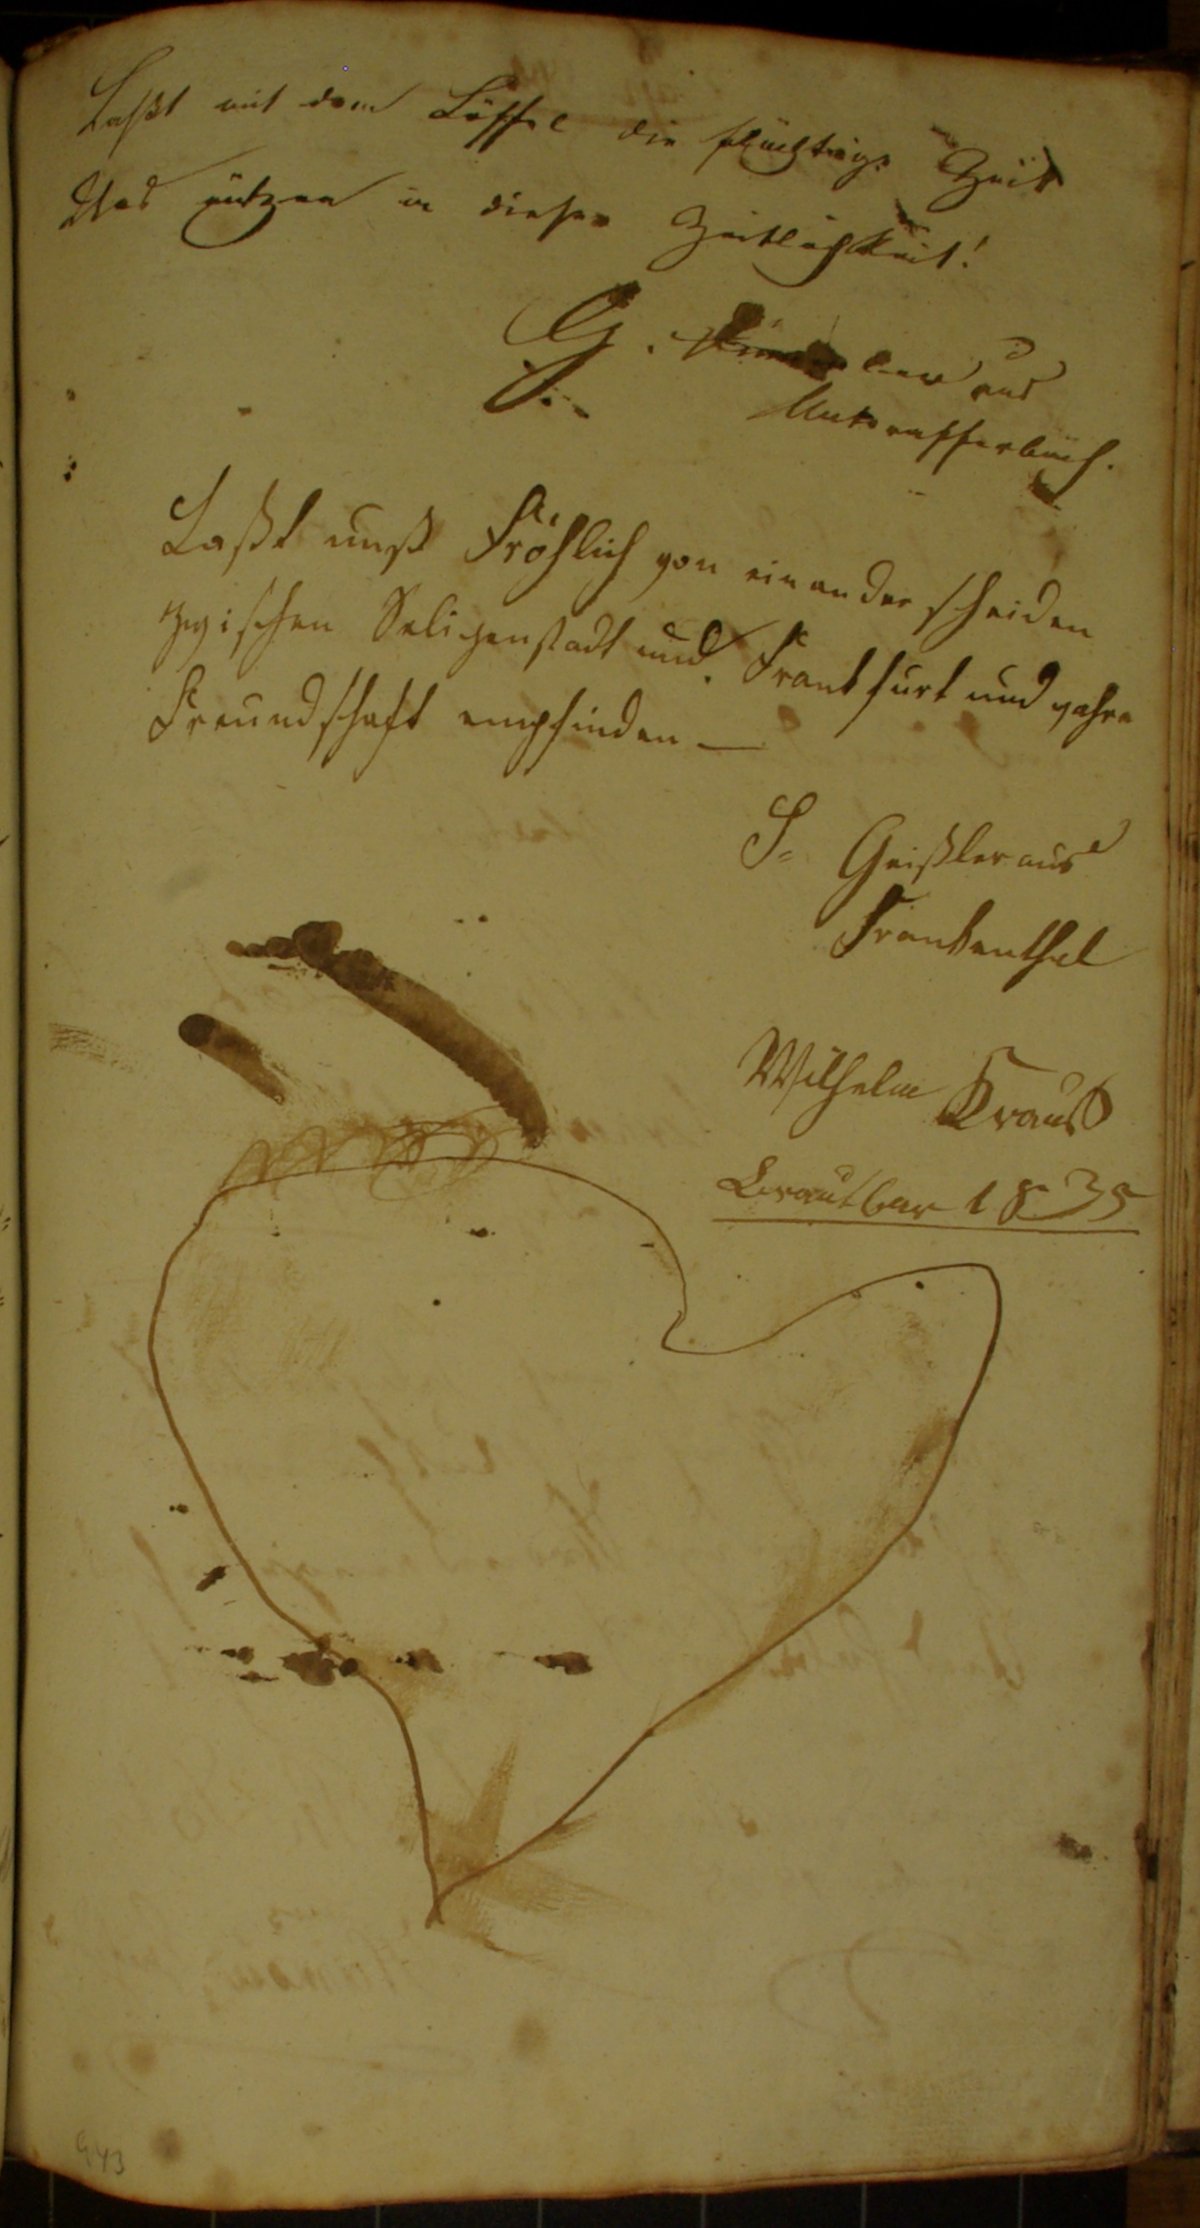 Laßt mit dem Löffel die flüchtige Zeit
Uns nützen in dieser Zeitlichkeit!
G. aus
Unterafferbach.
Laßt unß Fröhlich von einander scheiden
zwischen Seligenstadt und Frankfurt und wahre
Freundschaft empfinden —
S= Geißler aus
Frankenthal
Wilhelm Krauß
1835
943